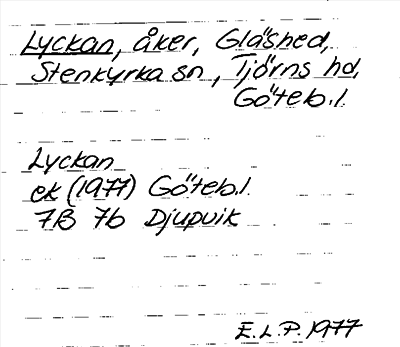 Lyckan, åker, Gläshed,
Stenkyrka sn, Tjörns hd,
Göteb.l.
Lyckan
ek (1977) Göteb.l.
7B 7b Djupvik
E.L.P. 1977